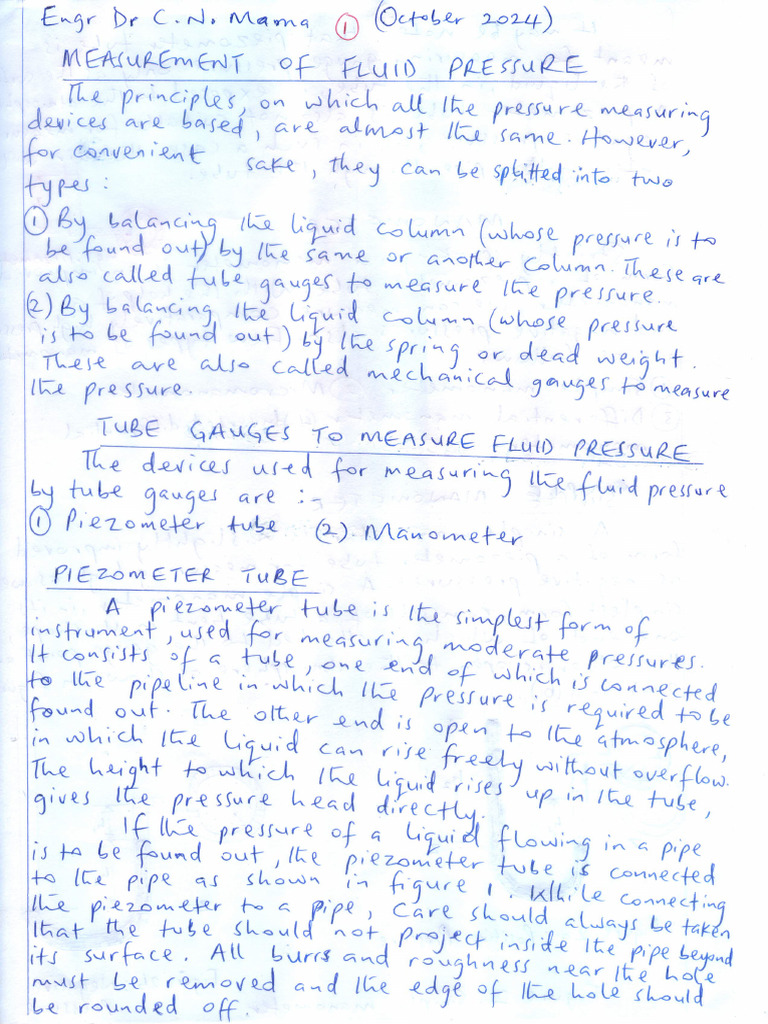 Engr Dr C. N. Mama (1) (October 2024)
MEASUREMENT OF FLUID PRESSURE
The principles, on which all the pressure measuring
devices are based, are almost the same. However,
for convenient sake, they can be splitted into two
types:
(1) By balancing the liquid column (whose pressure is to
be found out) by the same or another column. These are
also called tube gauges to measure the pressure.
(2) By balancing the liquid column (whose pressure
is to be found out) by the spring or dead weight.
These are also called mechanical gauges to measure
the pressure.
TUBE GAUGES TO MEASURE FLUID PRESSURE
The devices used for measuring the fluid pressure
by tube gauges are :-
(1) Piezometer tube (2). Manometer
PIEZOMETER TUBE
A piezometer tube is the simplest form of
instrument, used for measuring, moderate pressures.
It consists of a tube, one end of which is connected
to the pipeline in which the pressure is required to be
found out. The other end is open to the atmosphere,
in which the liquid can rise freely without overflow.
The height to which the liquid rises up in the tube,
gives the pressure head directly.
If the pressure of a liquid flowing in a pipe
is to be found out, the piezometer tube is connected
to the pipe as shown in figure 1. While connecting
the piezometer to a pipe, care should always be taken
that the tube should not project inside the pipe beyond
its surface. All burrs and roughness near the hole
must be removed and the edge of the hole should
be rounded off.